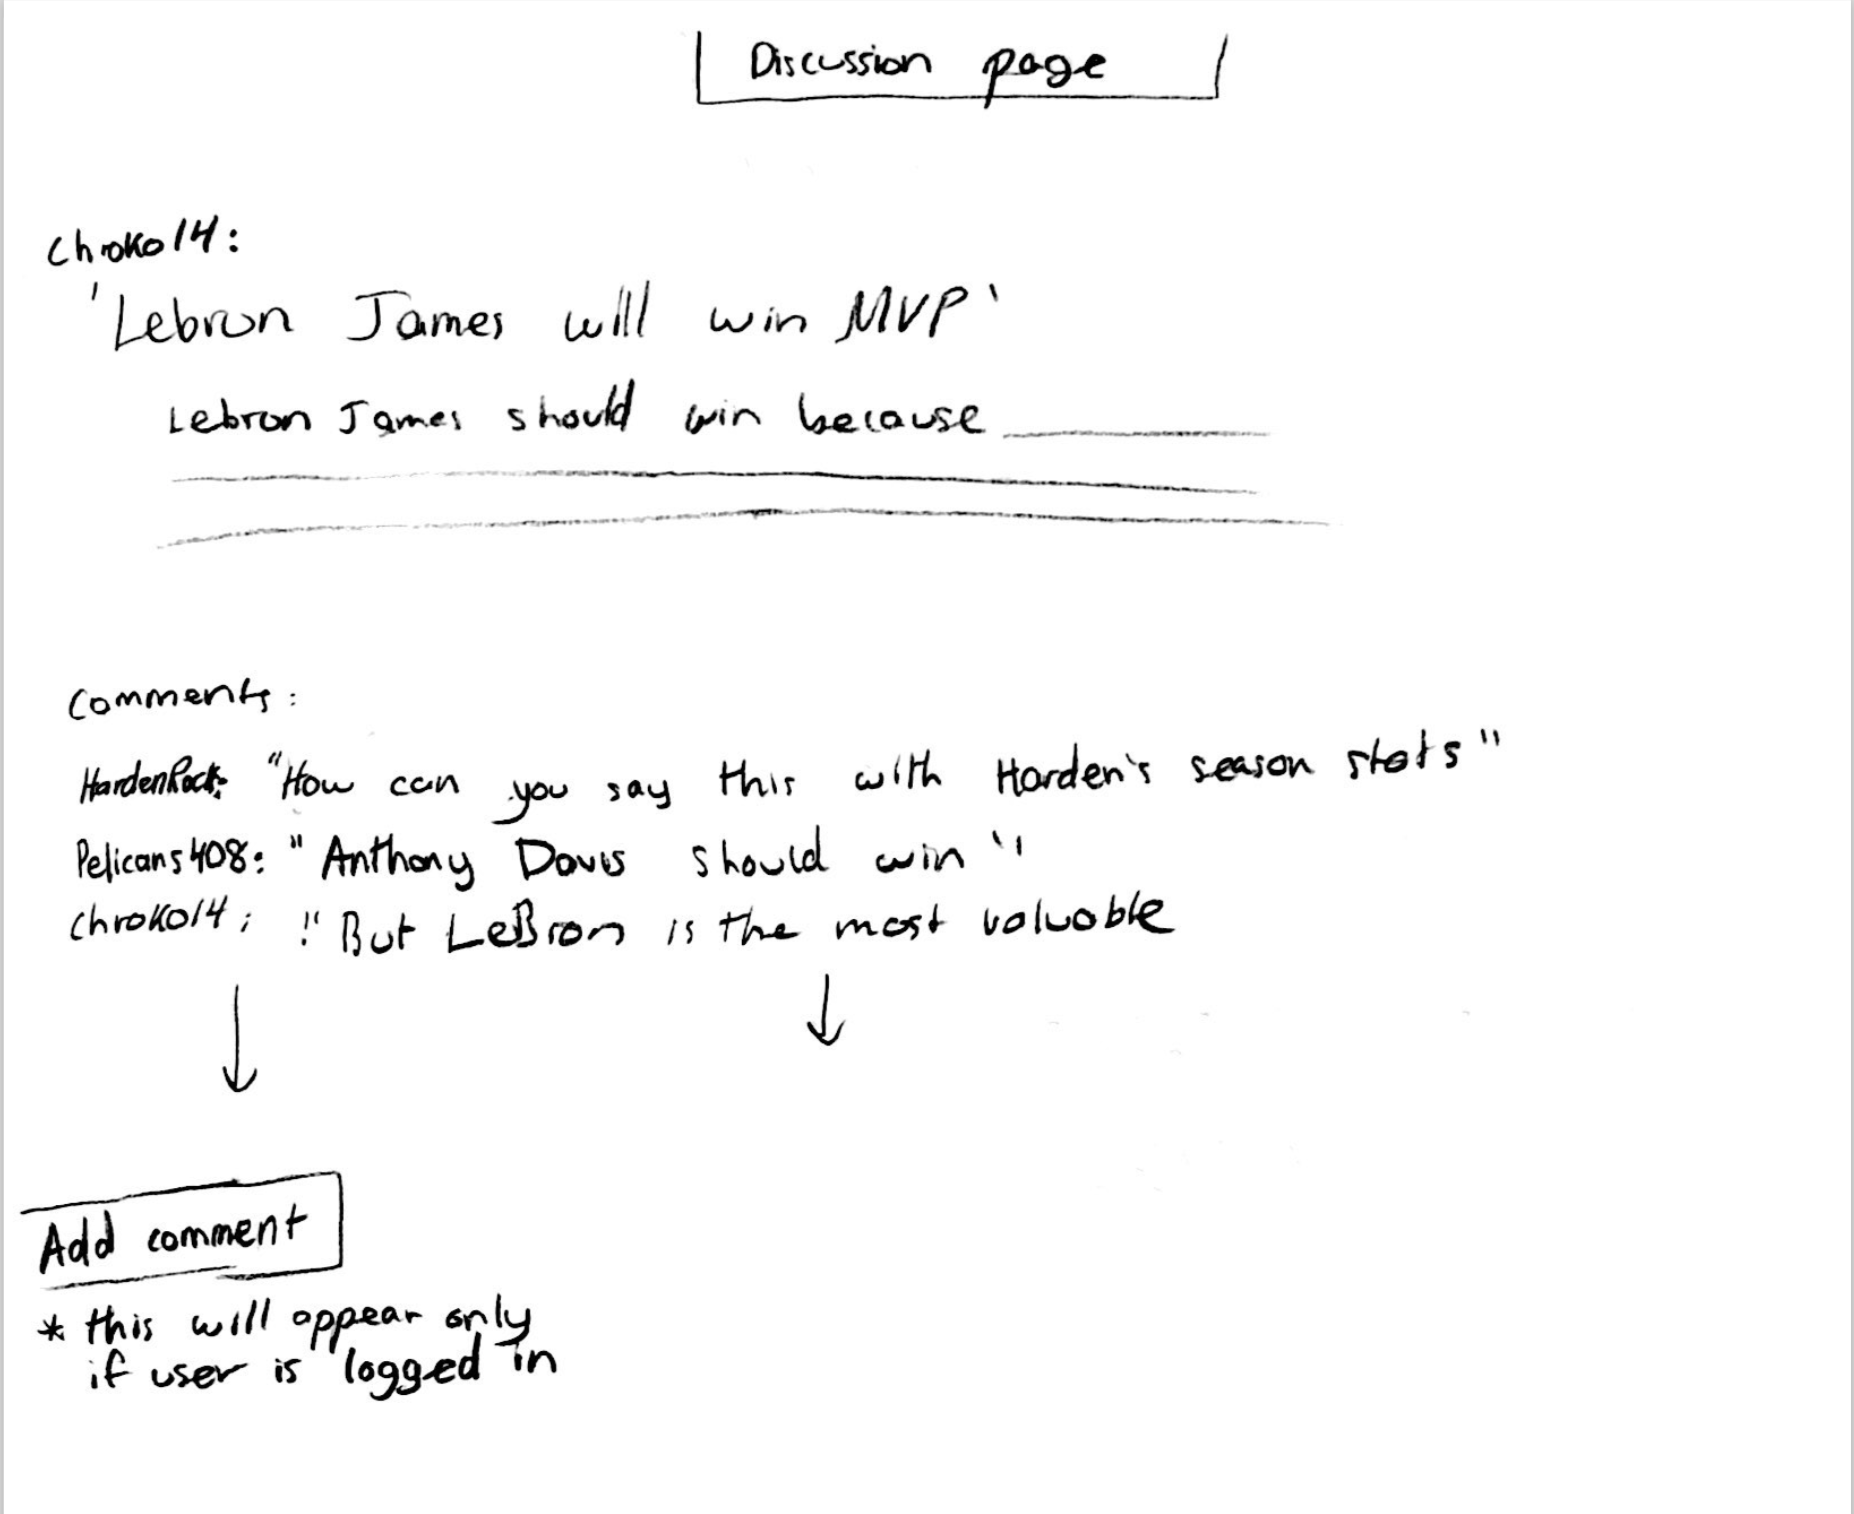 Discussion page
Chroko14:
'Lebron James will win MVP'
Lebron James should win because
Comments:
HardenRock: "How can you say this with Harden's season stats"
Pelicans408: "Anthony Davis should win"
Chroko14: "But LeBron is the most valuable
Add comment
* this will appear only
if user is logged in